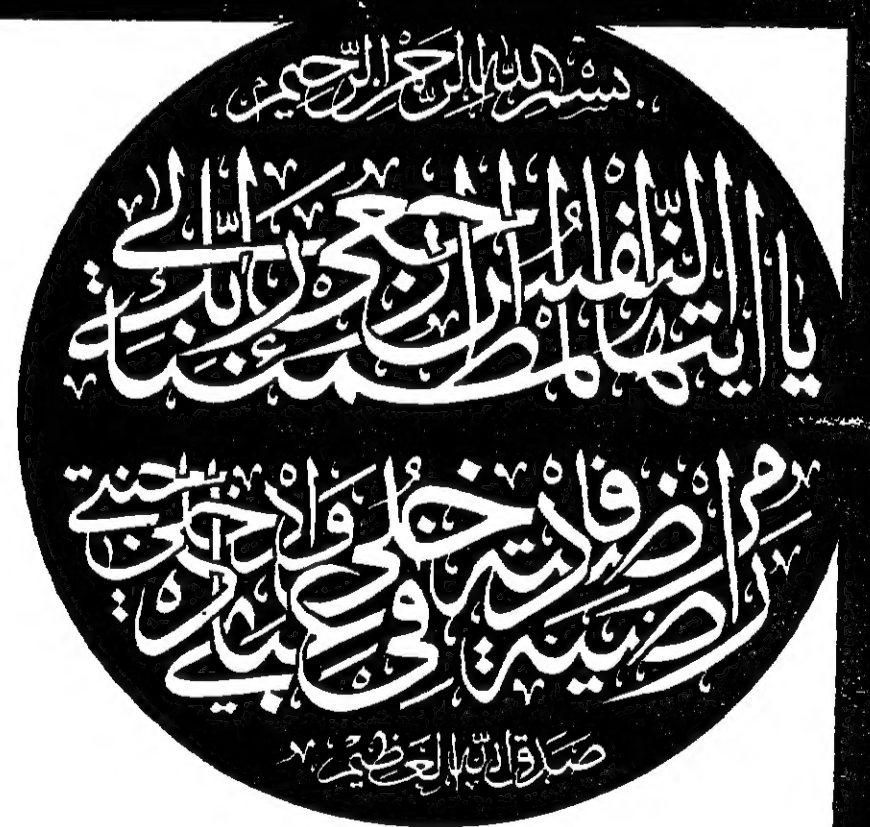 بسم الله الرحمن الرحيم
يا ايتها النفس المطمئنة ارجعي إلى ربك
راضية مرضية فادخلي في عبادي وادخلي جنتي
صدق الله العظيم